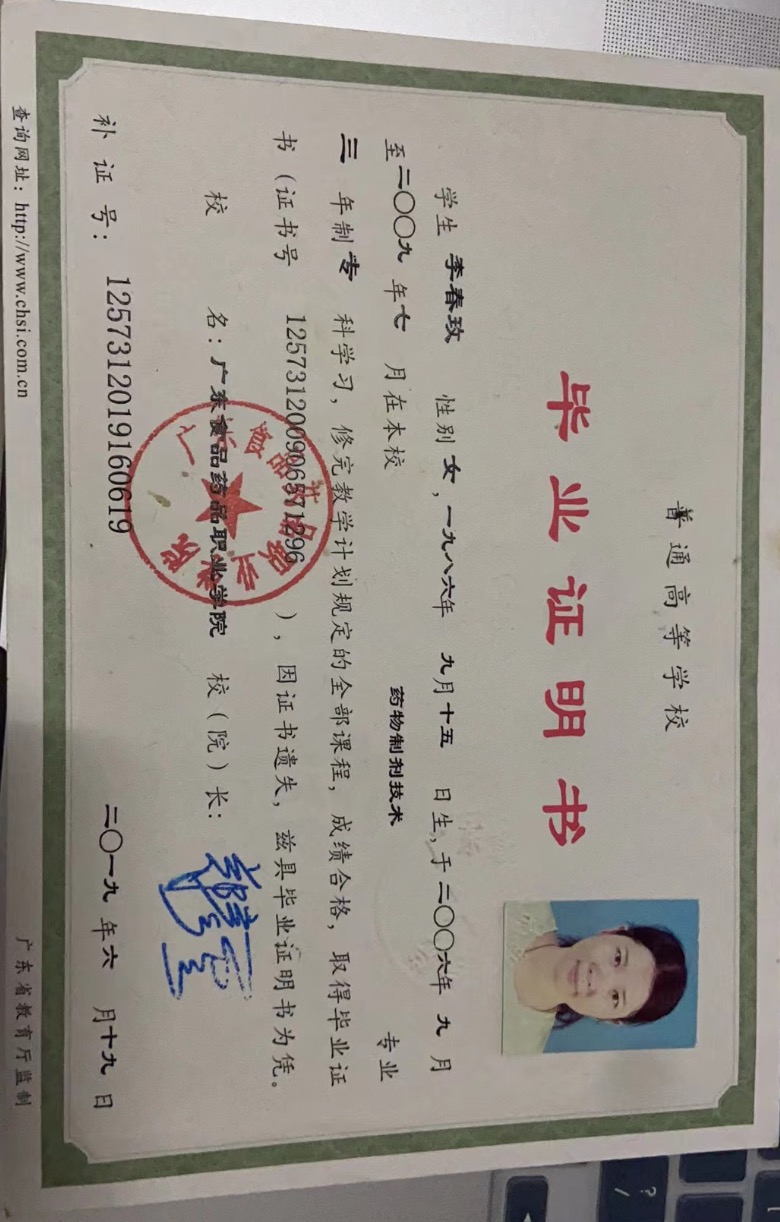 普通高等学校
毕业证明书
学生 李春玫 性别 女，一九八六年 九月十五 日生，于二〇〇六年 九 月
至二〇〇九 年七 月在本校 药物制剂技术 专业
三 年制 专 科学习，修完教学计划规定的全部课程，成绩合格，取得毕业证
书（证书号 125731200906571296 ），因证书遗失，兹具毕业证明书为凭。
校 名：广东食品药品职业学院 校（院）长：
广东食品药品职业学院
补 证 号： 12573120191606​19 二〇一九 年六 月十九 日
查询网址：http://www.chsi.com.cn 广东省教育厅监制
?
/